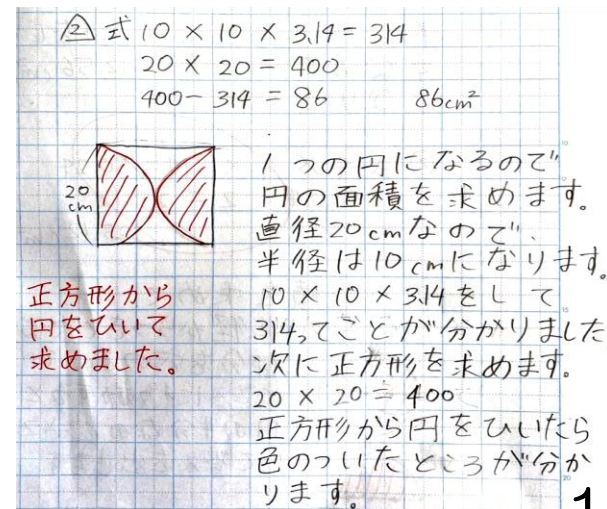 ② 式 10 × 10 × 3.14 = 314
20 × 20 = 400
400 - 314 = 86 86cm²
20
cm
1つの円になるので
円の面積を求めます。
直径20cmなので、
半径は10cmになります。
10 × 10 × 3.14をして
314ってことが分かりました
次に正方形を求めます。
20 × 20 = 400
正方形から円をひいたら
色のついたところが分か
ります。
正方形から
円をひいて
求めました。
1